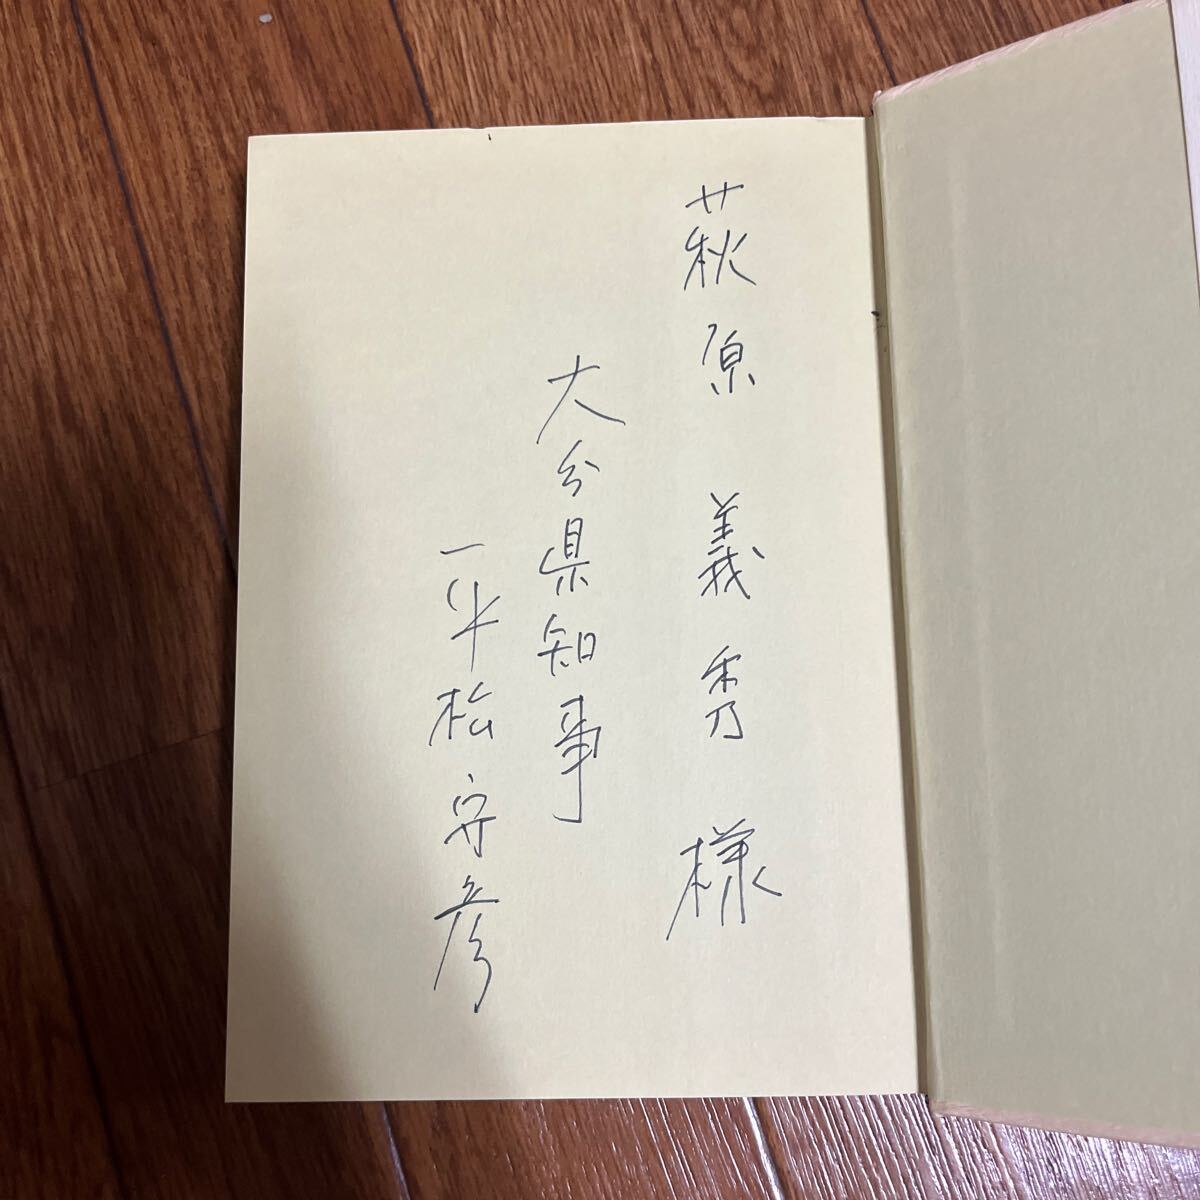 萩原義秀様
大分県知事
平松守彦